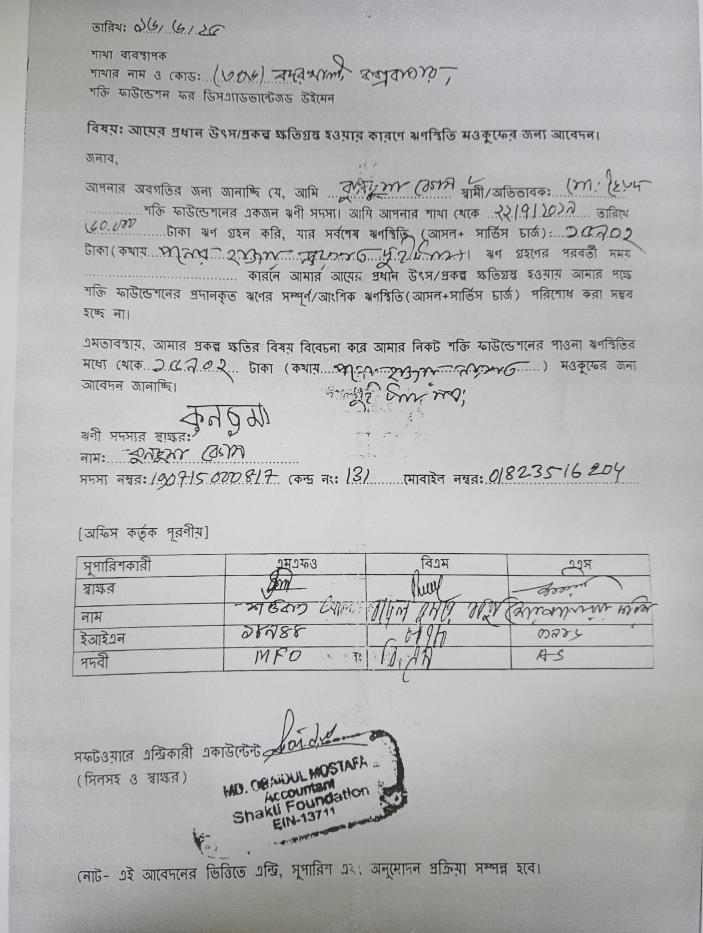 তারিখ: ১৬/৬/২৫
শাখা ব্যবস্থাপক
শাখার নাম ও কোড: (৬০৬) বদরখালী, কক্সবাজার,
শক্তি ফাউন্ডেশন ফর ডিসএ্যাডভান্টেজড উইমেন
বিষয়: আয়ের প্রধান উৎস/প্রকল্প ক্ষতিগ্রস্থ হওয়ার কারণে ঋণস্থিতি মওকুফের জন্য আবেদন।
জনাব,
আপনার অবগতির জন্য জানাচ্ছি যে, আমি কুলছুমা বেগম স্বামী/অভিভাবক: মো:
শক্তি ফাউন্ডেশনের একজন ঋণী সদস্য। আমি আপনার শাখা থেকে তারিখে
টাকা ঋণ গ্রহন করি, যার সর্বশেষ ঋণস্থিতি (আসল+ সার্ভিস চার্জ): ১৫৯০২
টাকা(কথায় পনের হাজার নয়শত দুই টাকা)। ঋণ গ্রহণের পরবর্তী সময়
কারনে আমার আয়ের প্রধান উৎস/প্রকল্প ক্ষতিগ্রস্থ হওয়ায় আমার পক্ষে
শক্তি ফাউন্ডেশনের প্রদানকৃত ঋণের সম্পূর্ণ/আংশিক ঋণস্থিতি(আসল+সার্ভিস চার্জ) পরিশোধ করা সম্ভব
হচ্ছে না।
এমতাবস্থায়, আমার প্রকল্প ক্ষতির বিষয় বিবেচনা করে আমার নিকট শক্তি ফাউন্ডেশনের পাওনা ঋণস্থিতির
মধ্যে থেকে ১৫৯০২ টাকা (কথায় পনের হাজার নয়শত ) মওকুফের জন্য
আবেদন জানাচ্ছি। দুই টাকা মাত্র;
কুলছুমা
ঋণী সদস্যর স্বাক্ষর:
নাম: কুলছুমা বেগম
সদস্য নম্বর: 190715000817 কেন্দ্র নং: 131 মোবাইল নম্বর: 01823516204
[অফিস কর্তৃক পূরণীয়]
সুপারিশকারী এমএফও বিএম এএস
স্বাক্ষর
নাম
ইআইএন ১৮৭৪৪
পদবী MFO বি,এম A-S
সফটওয়্যারে এন্ট্রিকারী একাউন্টেন্ট
(সিলসহ ও স্বাক্ষর)
MD. OBAIDUL MOSTAFA
Accountant
Shakti Foundation
EIN-13711
নোট- এই আবেদনের ভিত্তিতে এন্ট্রি, সুপারিশ এবং অনুমোদন প্রক্রিয়া সম্পন্ন হবে।